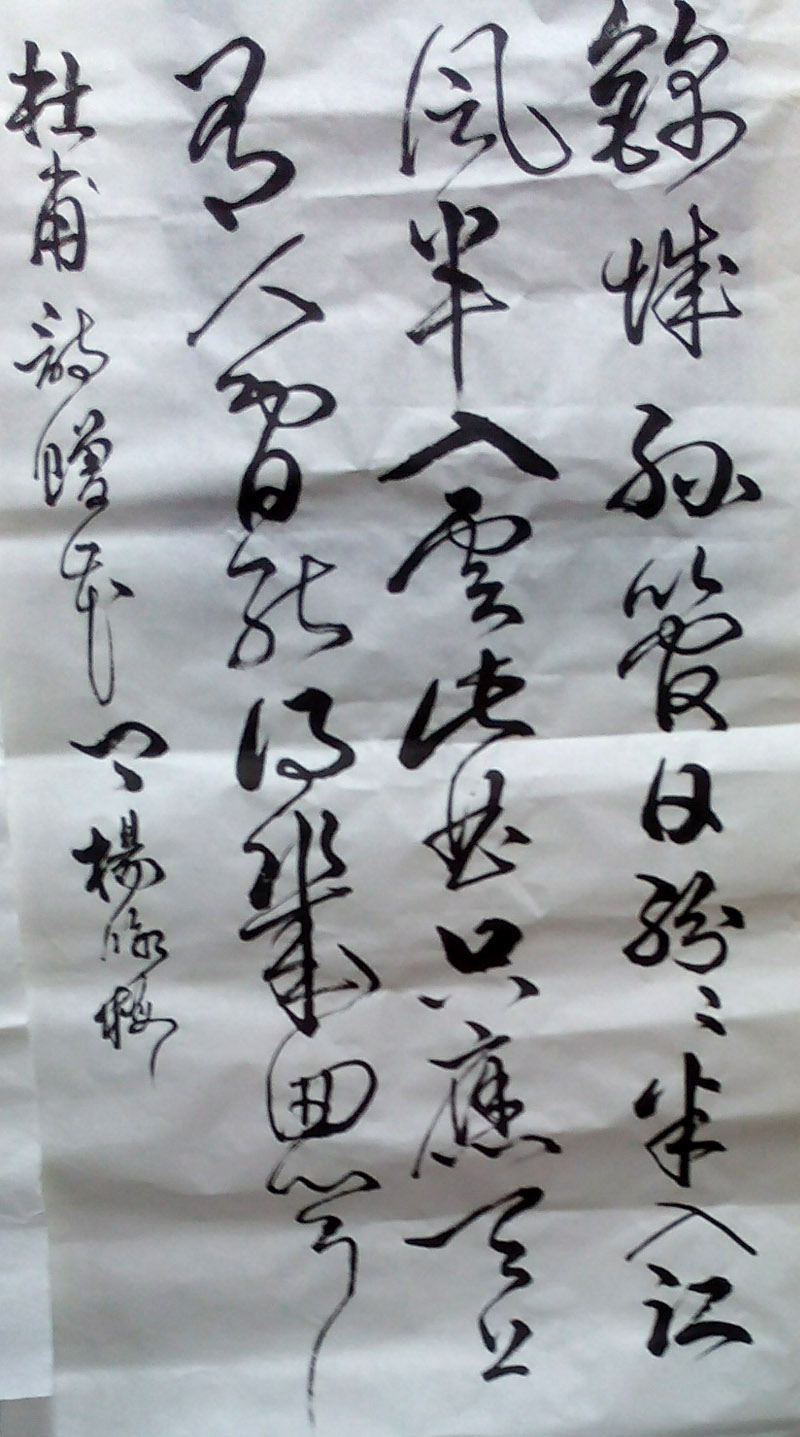 錦城絲管日紛〻半入江
風半入雲此曲只應天上
有人間能得幾回聞
杜甫詩贈花卿 楊